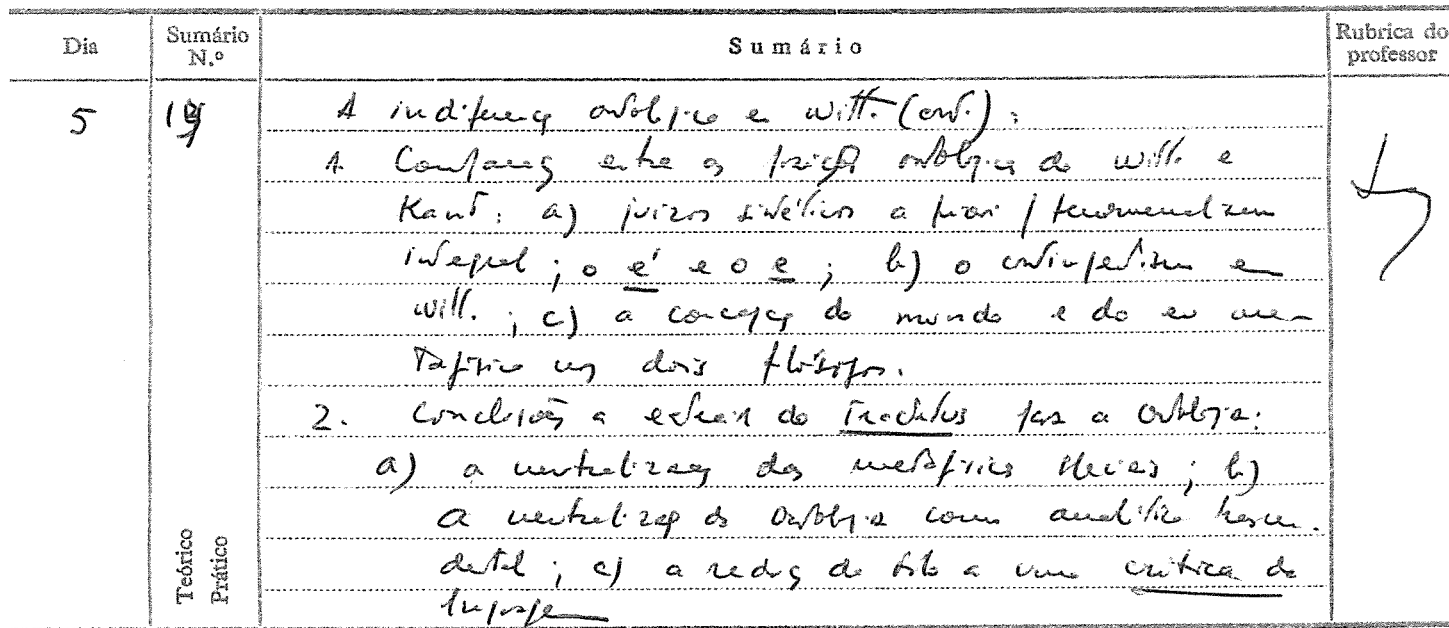 Dia
Sumário N.º
Sumário
Rubrica do professor
5
19
A indiferença ontológica em Witt. (cont.):
1. Comparação entre as posições ontológicas de Witt. e
Kant: a) juízos sintéticos a priori / fenomenalismo
integral; o é e o e; b) o contingentismo em
Witt.; c) a concepção do mundo e do eu me-
tafísico nos dois filósofos.
2. Conclusões a extrair do Tractatus para a Ontologia:
a) a neutralização das metafísicas; b)
a neutralização da Ontologia como analítica transcen-
dental; c) a redução da filo a uma crítica da
linguagem
Teórico
Prático